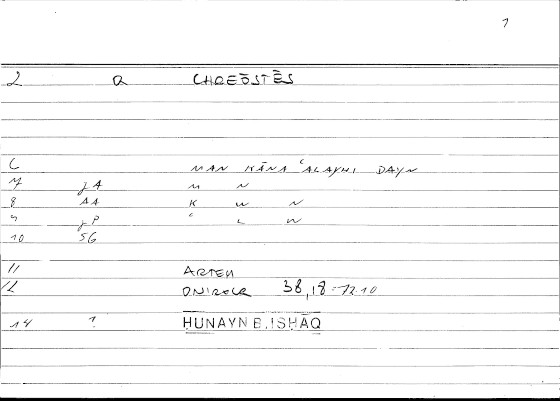 1
2 Q CHREŌSTĒS
6 MAN KĀNA ʿALAYHI DAYN
7 jA M N
8 AA K W N
9 jP ʿ L W
10 SG
11 ARTEM
12 ONIROCR 38,18 = 72.10
14 1 HUNAYN B. ISHĀQ